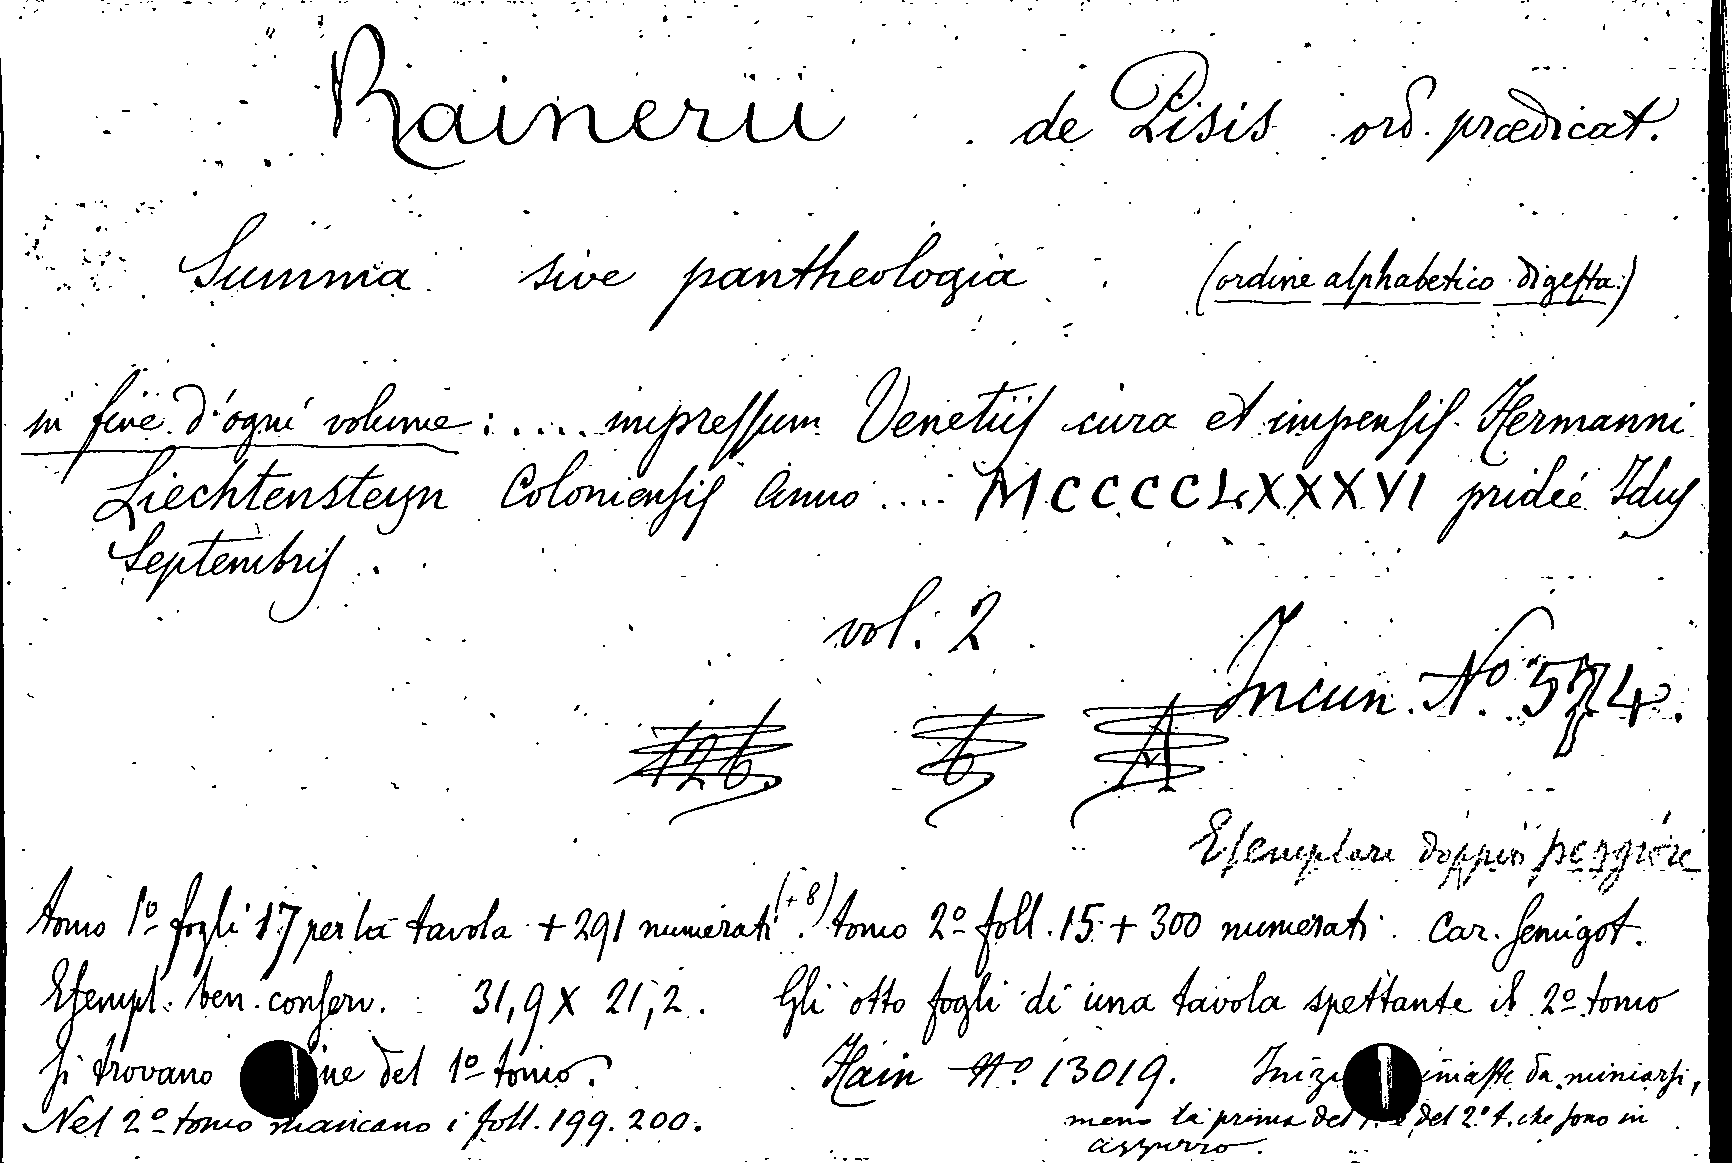 Rainerii de Pisis ord. prædicat.
Summa sive pantheologia (ordine alphabetico digesta)
in fine d'ogni volume: .... impressum Venetiis cura et impensis Hermanni
Liechtensteyn Coloniensis Anno .... MCCCCLXXXVI pridie Idus
Septembris.
vol. 2
Incun. Nº 574.
126. 6 A
Esemplare doppio peggiore
(+8)
tomo 1º fogli 17 per la tavola + 291 numerati. tomo 2º foll. 15 + 300 numerati. Car. semigot.
Esempl. ben conserv. 31,9 X 21,2. Gli otto fogli di una tavola spettante il 2º tomo
si trovano ine del 1º tomo. Hain Nº 13019. Inizi imaste da miniarsi,
Nel 2º tomo mancano i foll. 199. 200. meno la prima del 1. e del 2º t. che sono in
azzurro.